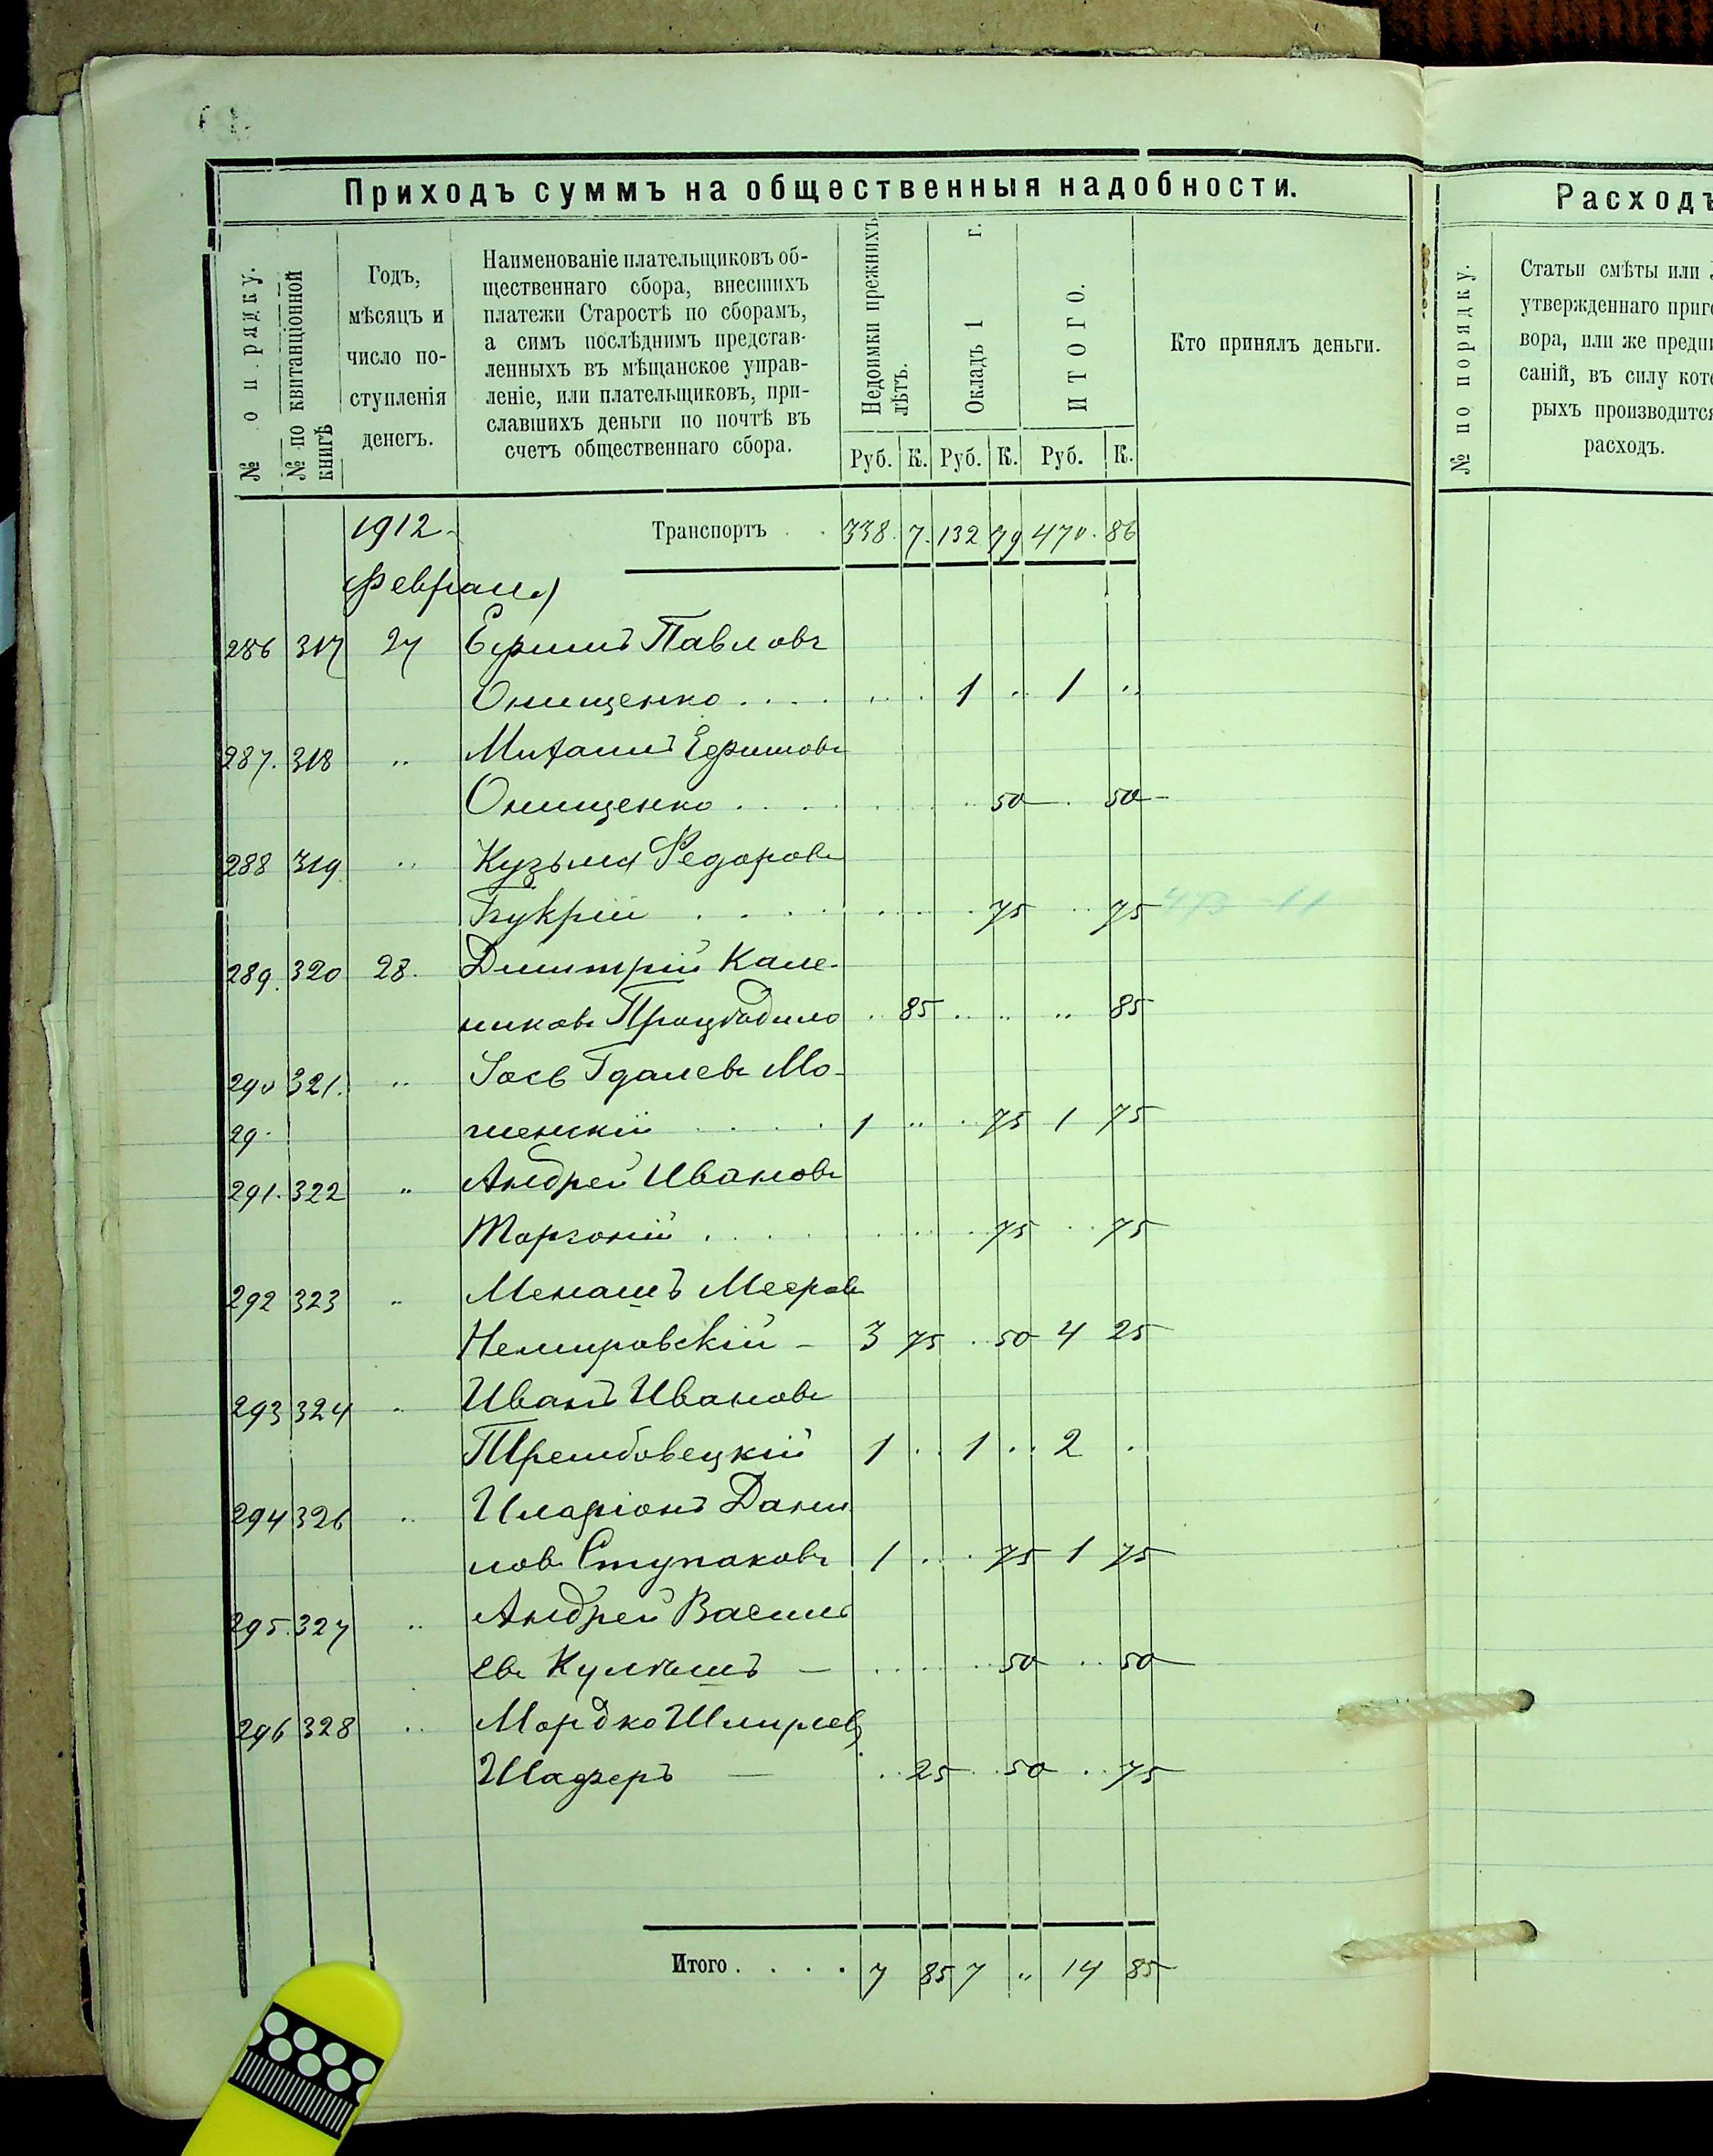 Приходъ суммъ на общественныя надобности.
№ по порядку.
№ по квитанціонной книгѣ
Годъ, мѣсяцъ и число поступленія денегъ.
Наименованіе плательщиковъ об-
щественнаго сбора, внесшихъ
платежи Старостѣ по сборамъ,
а симъ послѣднимъ представ-
ленныхъ въ мѣщанское управ-
леніе, или плательщиковъ, при-
славшихъ деньги по почтѣ въ
счетъ общественнаго сбора.
Недоимки прежнихъ лѣтъ.
Окладъ 1 г.
ИТОГО.
Кто принялъ деньги.
Руб. К. Руб. К. Руб. К.
1912 Транспортъ 338. 7. 132 79 470. 86
Февраля
286 317 27 Ефимъ Павловъ
Онищенко . . . . 1 .. 1 ..
287. 318 .. Михаилъ Ефимовъ
Онищенко . . . . 50 . 50
288 319 .. Кузьма Федоровъ
. . . . 75 .. 75
289. 320 28. Дмитрій Кале-
никовъ . 85 .. .. .. 85
290 321. .. Іось Гдалевъ Мо-
29. . . . 1 .. . 75 1 75
291. 322 .. Андрей Ивановъ
. . . . 75 .. 75
292 323 .. Менашъ Мееровъ
Немировскій - 3 75 .. 50 4 25
293 324 .. Иванъ Ивановъ
Трембовецкій 1 .. 1 .. 2 .
294 326 .. Иларіонъ Дани
ловъ Ступаковъ 1 . .. 75 1 75
295. 327 .. Андрей Василь
евъ — .. .. 50 .. 50
296 328 .. Мордко
Шафферъ — .. 25 .. 50 .. 75
Итого . . . . 7 85 7 " 14 85
Расходъ
№ по порядку.
Статьи смѣты или
утвержденнаго приго
вора, или же предпи
саній, въ силу кото
рыхъ производится
расходъ.